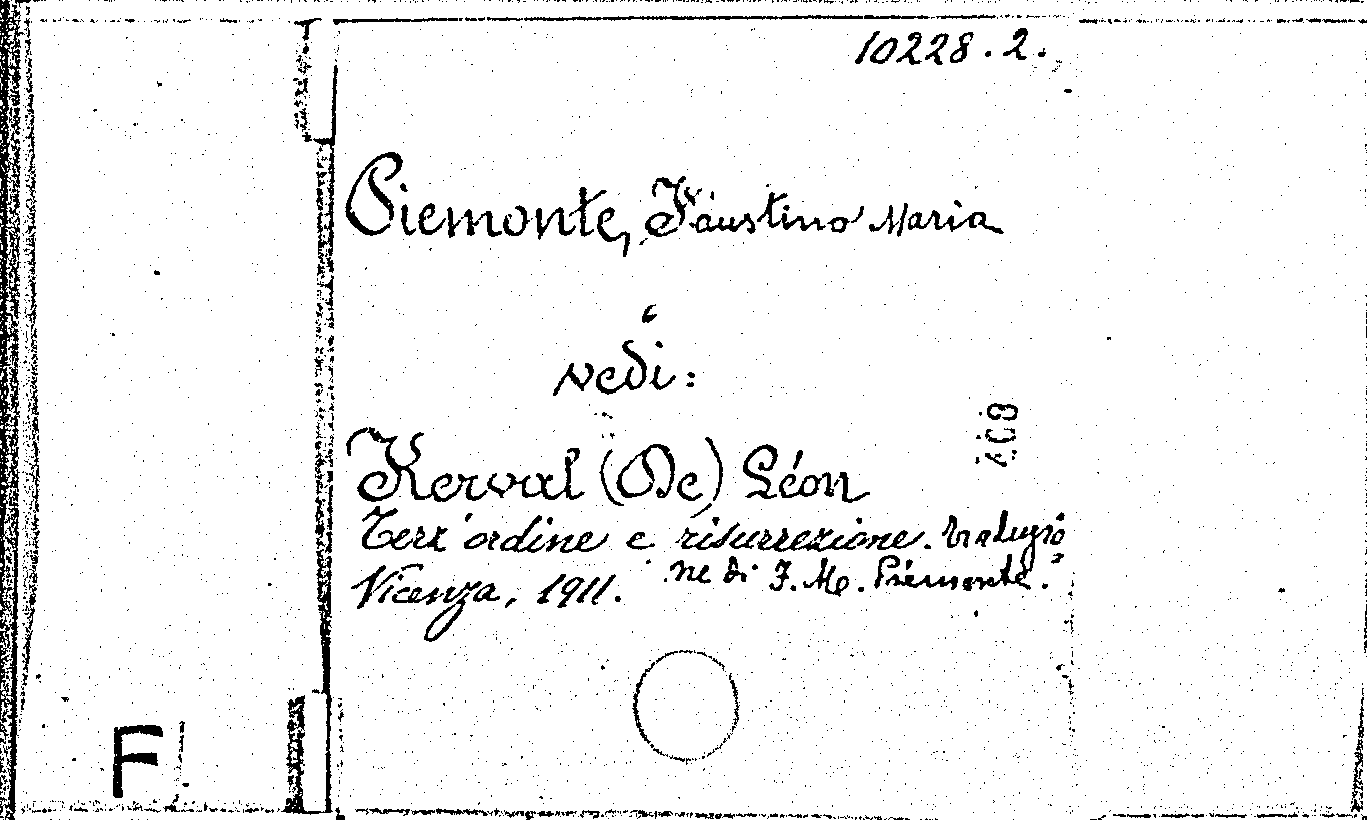 10228.2.
Piemonte, Faustino Maria
vedi:
Kerval (De) Léon
Terz'ordine e risurrezione. Traduzio
ne di F. M. Piemonte.
Vicenza, 1911.
F